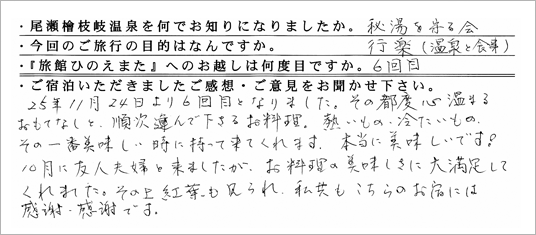 ・尾瀬檜枝岐温泉を何でお知りになりましたか。 秘湯を守る会
・今回のご旅行の目的はなんですか。 行楽(温泉と食事)
・『旅館ひのえまた』へのお越しは何度目ですか。 6回目
・ご宿泊いただきましたご感想・ご意見をお聞かせ下さい。
25年11月24日より6回目となりました。その都度心温まる
おもてなしと、順次運んで下さるお料理。熱いもの・冷たいもの、
その一番美味しい時に持って来てくれます。本当に美味しいです!
10月に友人夫婦と来ましたが、お料理の美味しさに大満足して
くれました。その上紅葉も見られ、私共もこちらのお宿には
感謝・感謝です。